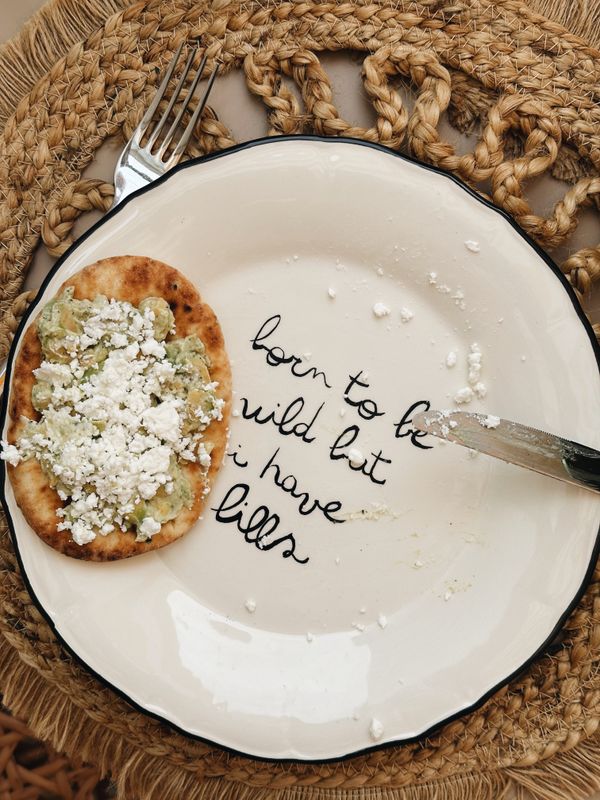 born to be
wild but
i have
bills